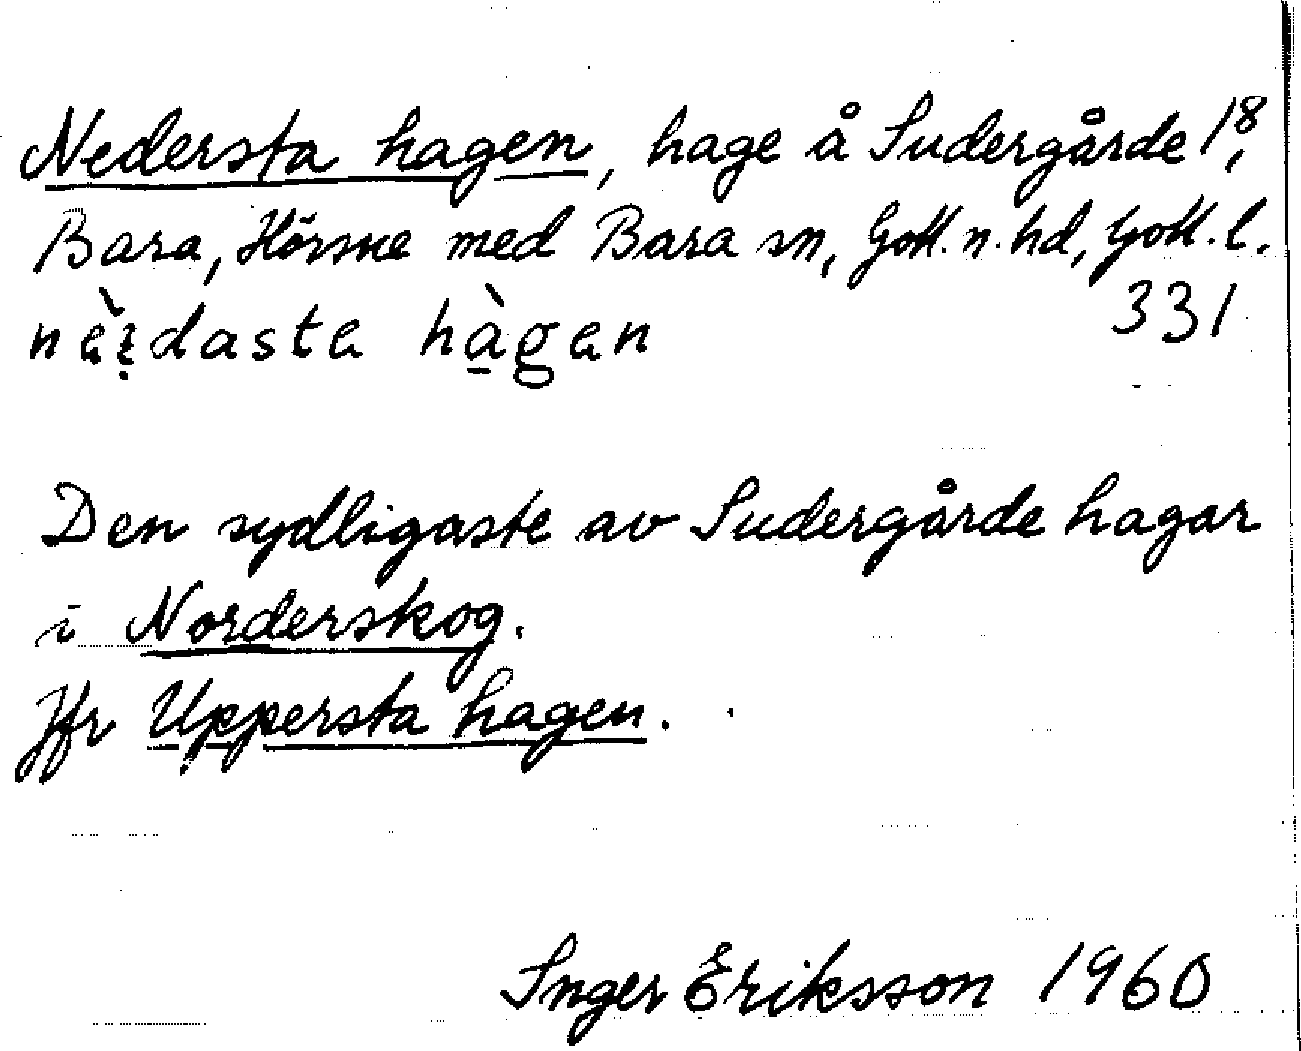 Nedersta hagen, hage å Sudergårde 1⁸,
Bara, Hörsne med Bara sn, Gotl. n. hd, Gotl. l.
331
nä̀ṛdasta hàgan
Den sydligaste av Sudergårde hagar
i Norderskog.
Jfr Uppersta hagen.
Inger Eriksson 1960